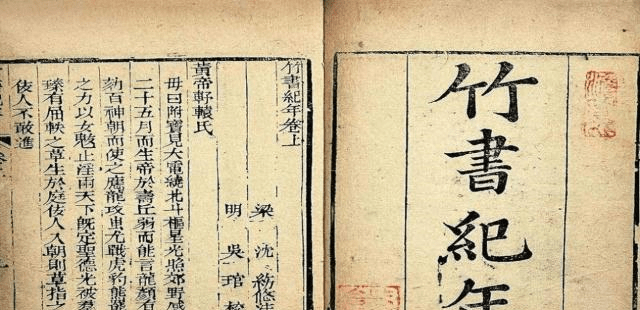 竹書紀年
竹書紀年卷上
梁 沈約
明 吳琯校
黃帝軒轅氏
母曰附寶見大電繞北斗樞星光照郊野感
二十五月而生帝於壽丘弱而能言龍顏有
劾百神朝而使之應龍攻蚩尤戰虎豹熊羆
之力以女魃止淫雨天下旣定聖德光被羣
臻有屈軼之草生於庭佞人入朝則草指之
佞人不敢進